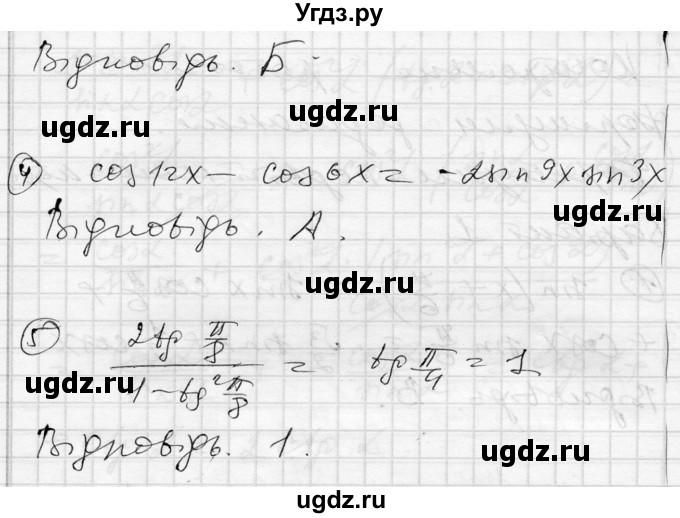 Угдз.ру
Відповідь. Б.
ugdz.ru ugdz.ru
4) cos12x - cos6x = -2sin9x sin3x
ugdz.ru
Відповідь. А.
ugdz.ru
5) 2tg π/8 / 1 - tg² π/8 = tg π/4 = 1
ugdz.ru
Відповідь. 1.
ugdz.ru
ugdz.ru ugdz.ru